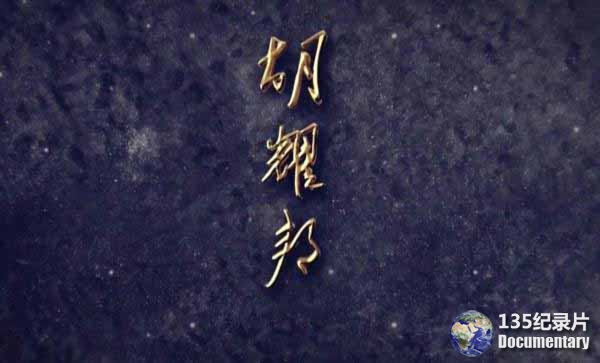 胡耀邦
135纪录片
Documentary